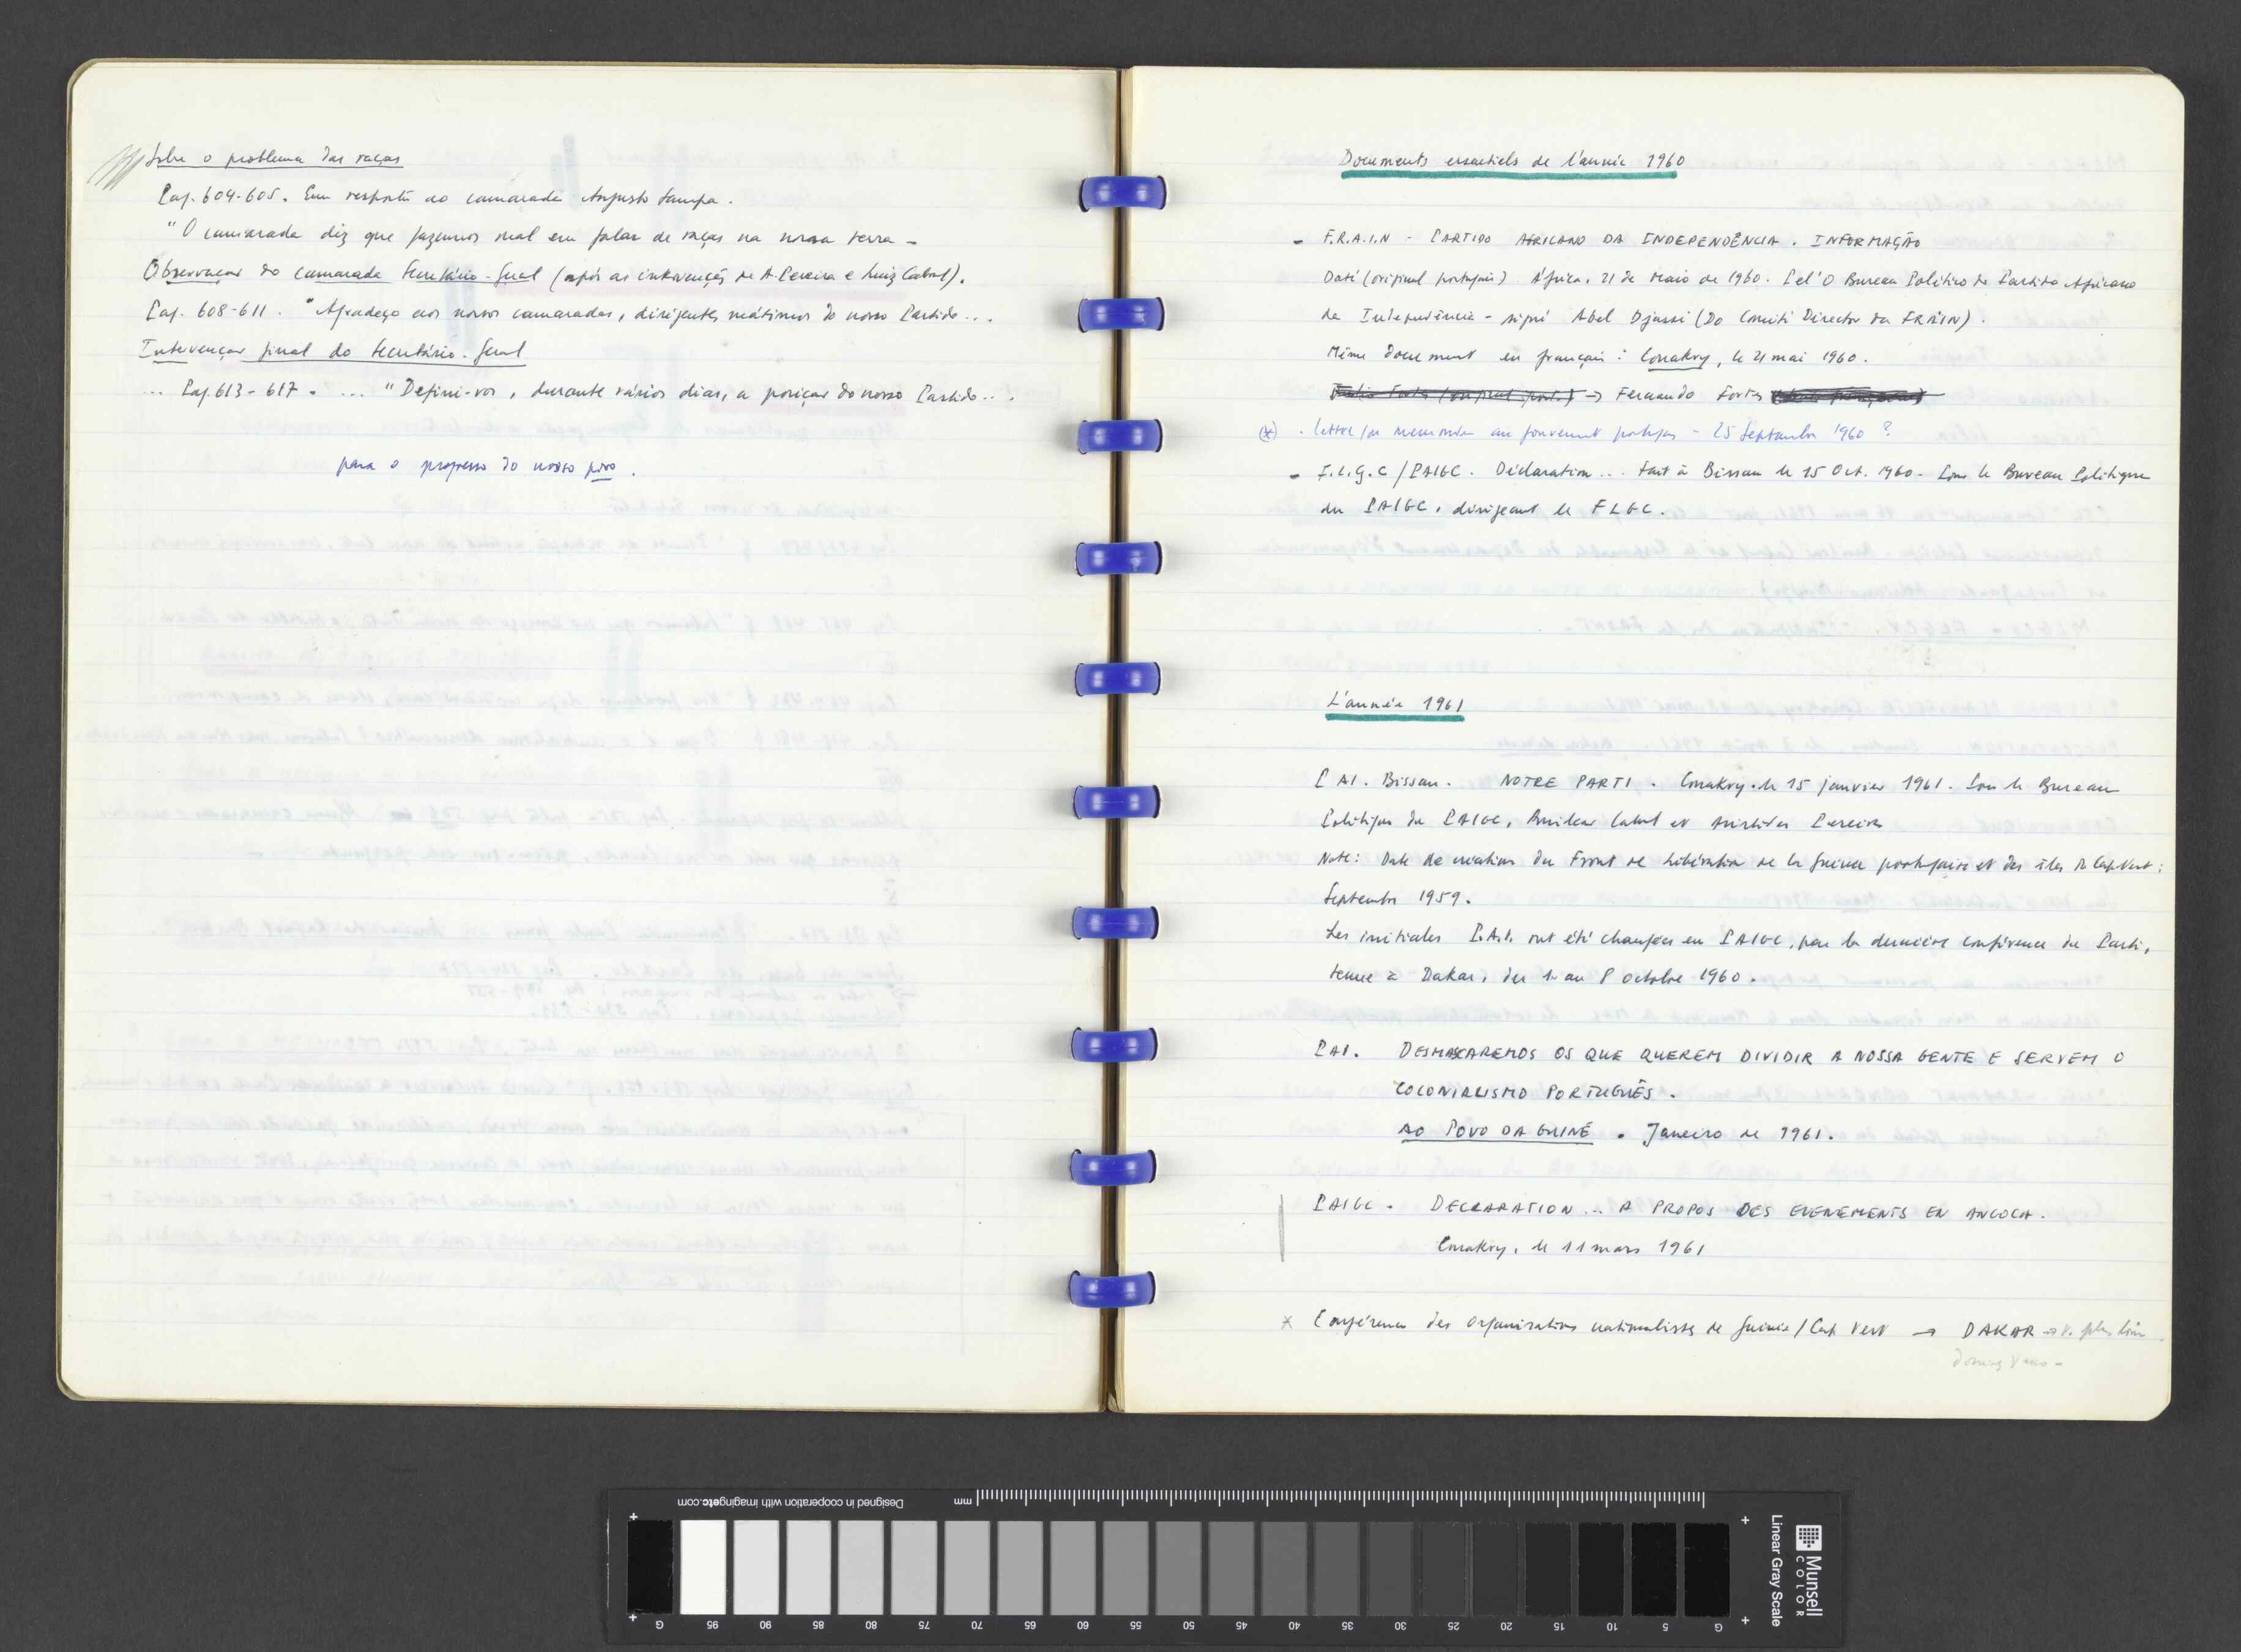 Sobre o problema das raças
Pag. 604-605. Em resposta ao camarada Augusto Sampa.
"O camarada diz que fazemos mal em falar de raças na nossa terra -
Observaçar do camarada Secretário-Geral (após as intervenções de A. Pereira e Luiz Cabral).
Pag. 608-611. "Agradeço aos nossos camaradas, dirigentes máximos do nosso Partido...
Intervençar final do Secretário-Geral
... Pag. 613-617. ... "Defini-vos, durante vários dias, a posiçar do nosso Partido...
para o progresso do nosso povo.
Documents essentiels de l'année 1960
- F.R.A.I.N - PARTIDO AFRICANO DA INDEPENDÊNCIA. INFORMAÇÃO
Daté (original portugais) África, 21 de Maio de 1960. Pel'O Bureau Político do Partido Africano
da Independência - signé Abel Djassi (Do Comité Director da FRAIN).
Même document en français: Conakry, le 21 mai 1960.
→ Fernando Fortes
(*) . Lettre/ou memorandum au gouvernement portugais - 25 Septembre 1960 ?
- F.L.G.C/PAIGC. Déclaration... Fait à Bissau le 15 Oct. 1960. Pour le Bureau Politique
du PAIGC, dirigeant le FLGC.
L'année 1961
PAI. Bissau. NOTRE PARTI. Conakry. le 15 janvier 1961. Pour le Bureau
Politique du PAIGC, Amilcar Cabral et Aristides Pereira
Note: Date de création du Front de Libération de la Guinée portugaise et des îles du Cap Vert:
Septembre 1959.
Les initiales P.A.I. ont été changées en PAIGC, par la dernière conférence du Parti,
tenue à Dakar, du 1er au 8 octobre 1960.
PAI. DESMASCAREMOS OS QUE QUEREM DIVIDIR A NOSSA GENTE E SERVEM O
COLONIALISMO PORTUGUÊS.
AO POVO DA GUINÉ. Janeiro de 1961.
PAIGC. DECLARATION... A PROPOS DES EVENEMENTS EN ANGOLA.
Conakry, le 11 mars 1961
* Conférence des Organisations nationalistes de Guinée/Cap Vert → DAKAR → v. plus loin
Designed in cooperation with imagingetc.com
mm
G 95 90 85 80 75 70 65 60 55 50 45 40 35 30 25 20 15 10 5 G
Munsell
COLOR
Linear Gray Scale